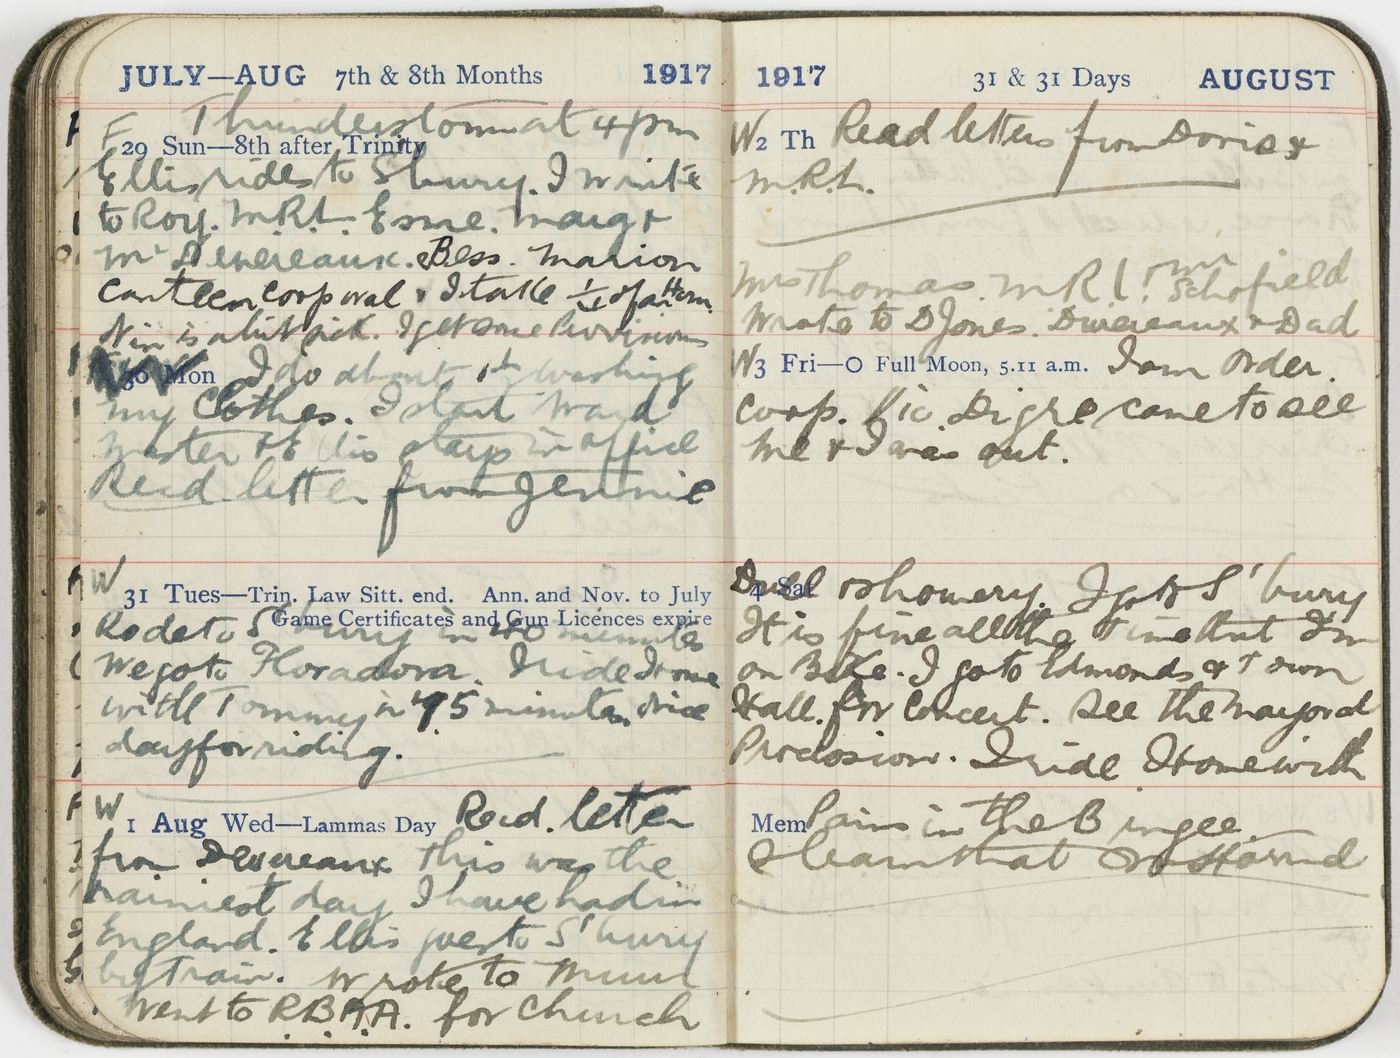 JULY—AUG 7th & 8th Months 1917
F Thunderstorm at 4 pm
29 Sun—8th after Trinity
Ellis rides to S'bury. I write
to Roy. M.R.L. Esme. Marg &
Mr Devereaux. Bess. Marion
Canteen corporal & I take of a
Nin is a bit sick. I get some Provisions
30 Mon I do about washing
my Clothes. I start Ward
Master & Ellis stays in office
Recd letter from Jennie
W
31 Tues—Trin. Law Sitt. end. Ann. and Nov. to July
Game Certificates and Gun Licences expire
Rode to S'bury in minutes
We go to Floradora. I ride Home
with Tommy in 75 minutes, nice
day for riding.
W
1 Aug Wed—Lammas Day Recd. letter
from Devereaux this was the
rainiest day I have had in
England. Ellis goes to S'bury
by Train. Wrote to Mum
Went to R.B.A.A. for Church
1917 31 & 31 Days AUGUST
W 2 Th Read letters from Doris &
M.R.L.
Mrs Thomas. M R L. Schofield
Wrote to D Jones. Devereaux & Dad
W 3 Fri—O Full Moon, 5.11 a.m. I am Order.
Corp. Vic. Digre came to see
me & I was out.
4 Sat
Dull & showery. I go to S'bury
It is fine all the Time that I'm
on Bike. I go to Edmonds & Town
Hall. for Concert. See the mayoral
Procession. I ride Home with
Mem Pains in the B
& learn that